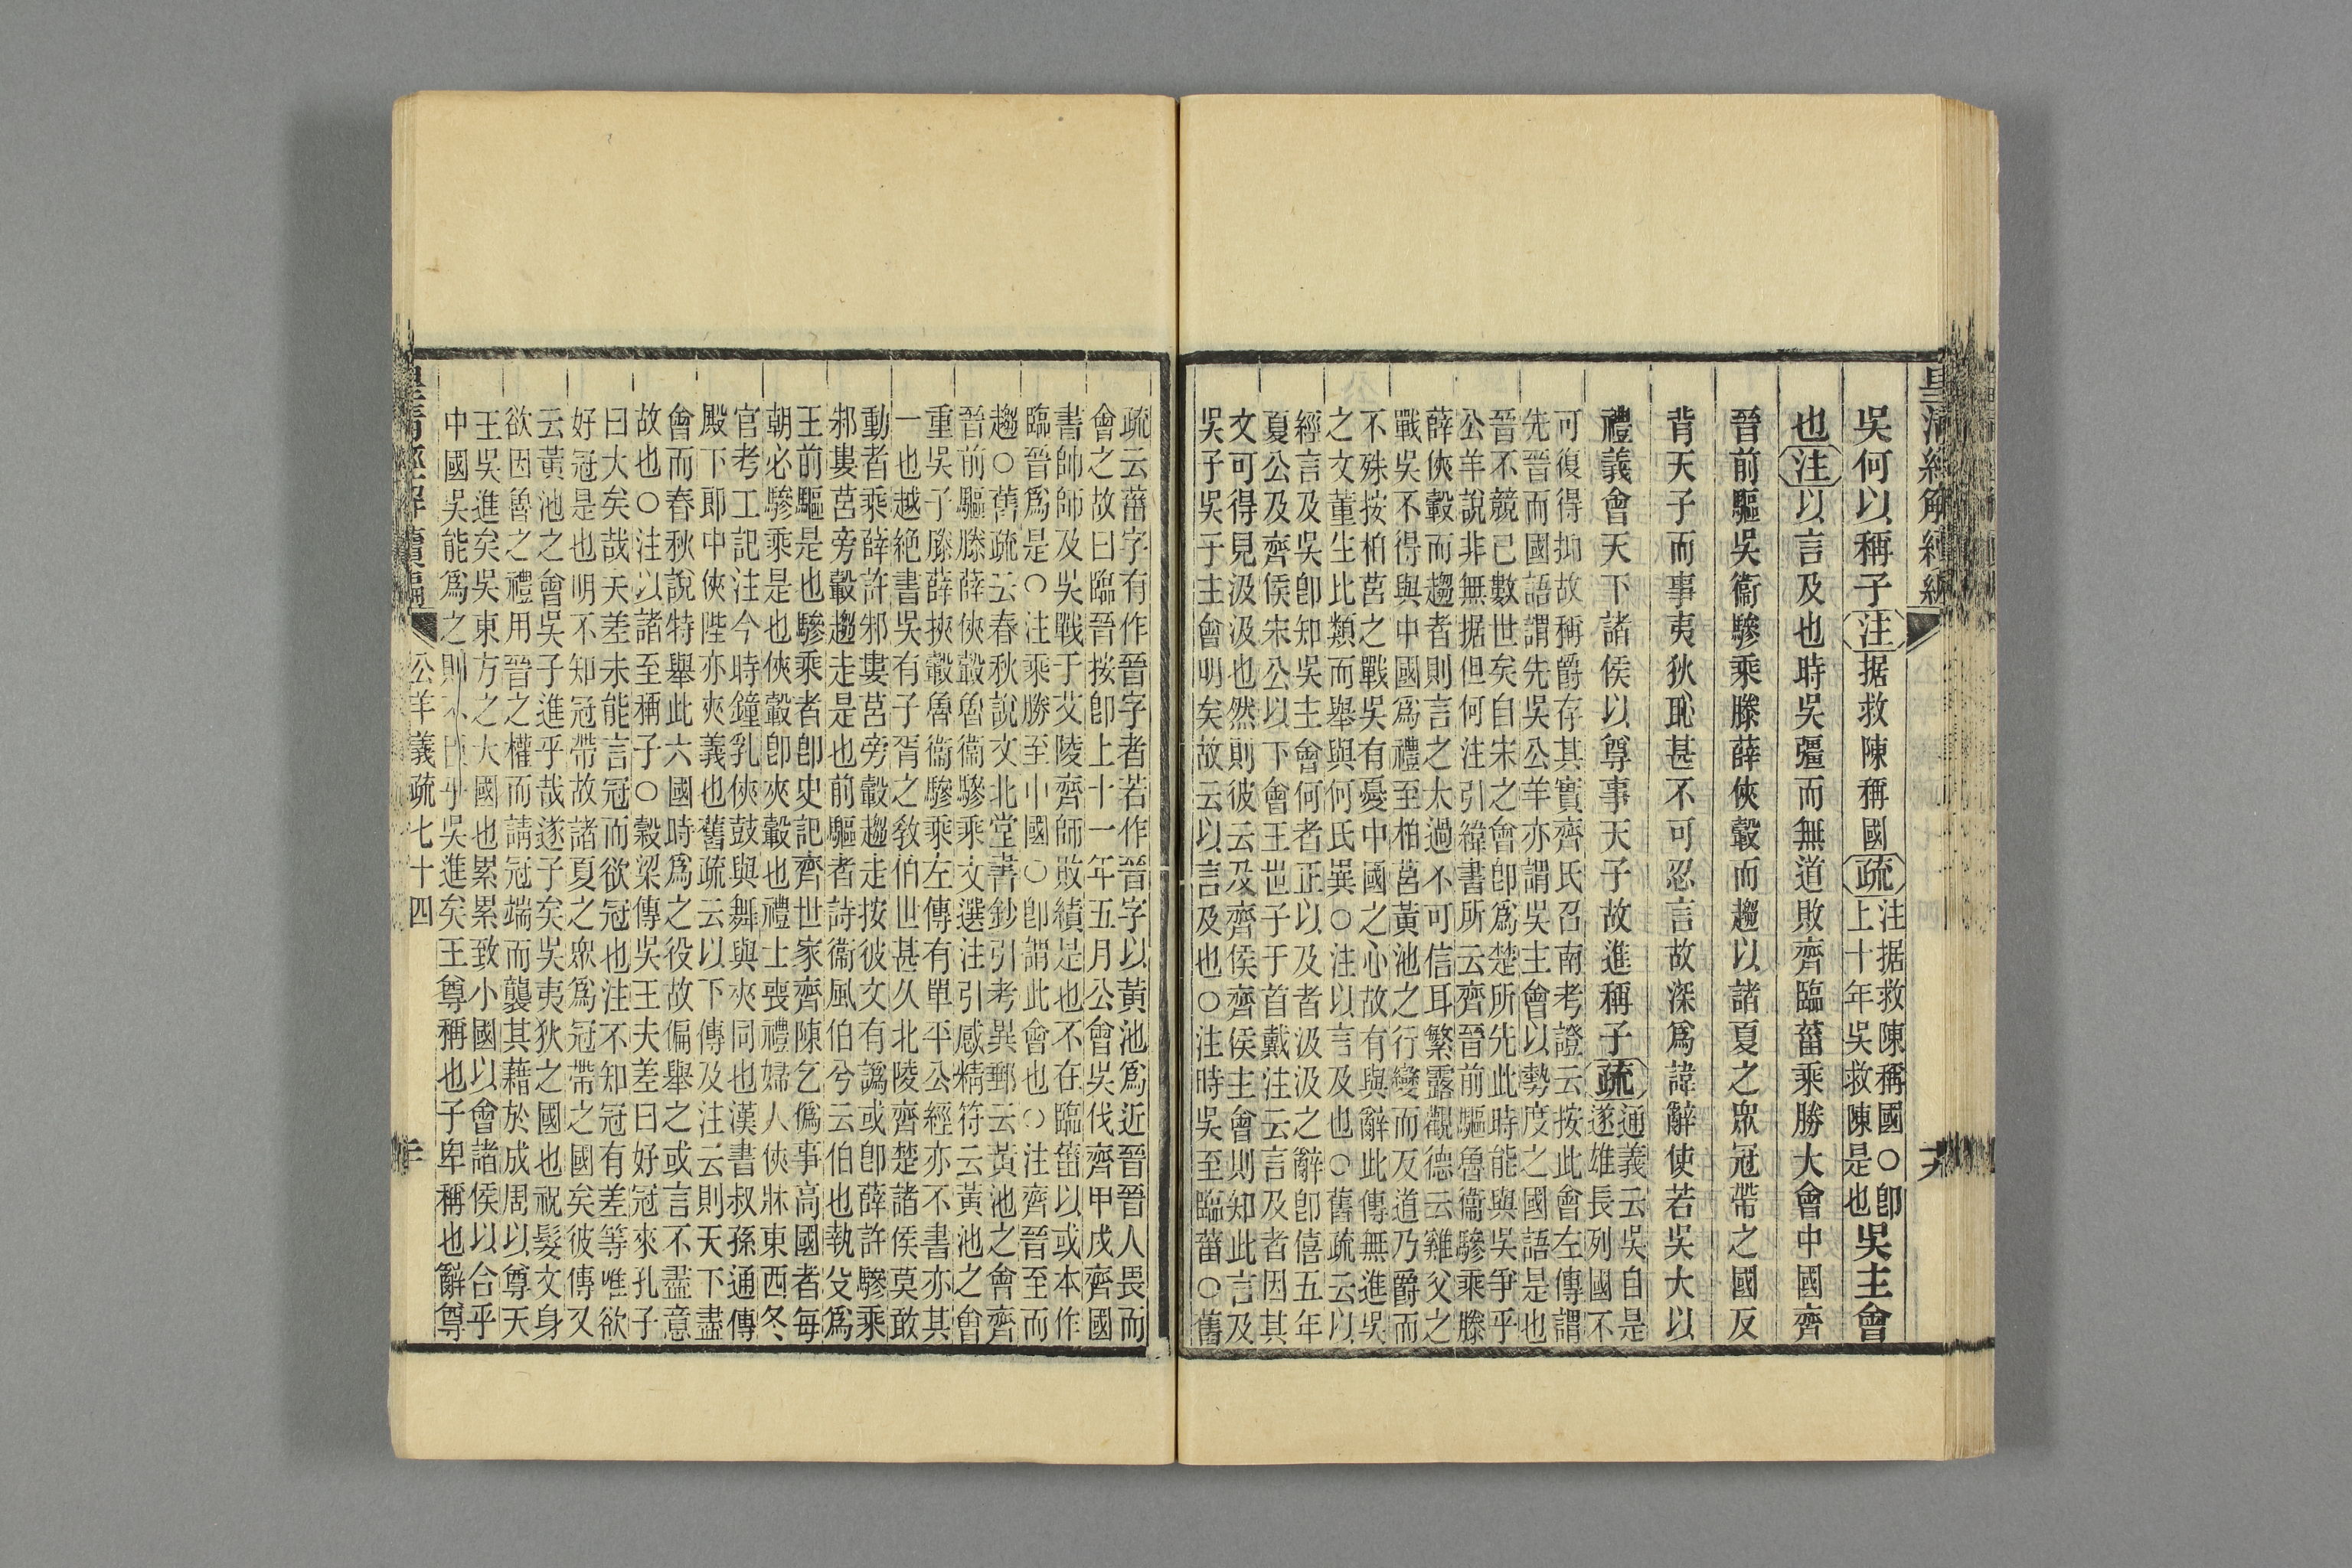 皇清經解續編
吳何以稱子注据救陳稱國疏注据救陳稱國○卽
上十年吳救陳是也吳主會
也注以言及也時吳彊而無道敗齊臨菑乘勝大會中國齊
晉前驅吳衞驂乘滕薛俠轂而趨以諸夏之眾冠帶之國反
背天子而事夷狄恥甚不可忍言故深爲諱辭使若吳大以
禮義會天下諸侯以尊事天子故進稱子疏通義云吳自是
遂雄長列國不
可復得抑故稱爵存其實齊氏召南考證云按此會左傳謂
先晉而國語謂先吳公羊亦謂吳主會以勢度之國語是也
晉不競已數世矣自宋之會卽爲楚所先此時能與吳爭乎
公羊說非無据但何注引緯書所云齊晉前驅魯衞驂乘滕
薛俠轂而趨者則言之太過不可信耳繁露觀德云雞父之
戰吳不得與中國爲禮至柏莒黃池之行變而反道乃爵而
不殊按柏莒之戰吳有憂中國之心故有與辭此傳無進吳
之文董生比類而舉與何氏異○注以言及也○舊疏云以
經言及吳卽知吳主會何者正以及者汲汲之辭卽僖五年
夏公及齊侯宋公以下會王世子于首戴注云言及者因其
文可得見汲汲也然則彼云及齊侯齊侯主會則知此言及
吳子吳子主會明矣故云以言及也○注時吳至臨菑○舊
疏云菑字有作晉字者若作晉字以黃池爲近晉晉人畏而
會之故曰臨晉按卽上十一年五月公會吳伐齊甲戌齊國
書帥師及吳戰于艾陵齊師敗績是也不在臨菑以或本作
臨晉爲是○注乘勝至中國○卽謂此會也○注齊晉至而
趨○舊疏云春秋說文北堂書鈔引考異郵云黃池之會齊
晉前驅滕薛俠轂魯衞驂乘文選注引感精符云黃池之會
重吳子滕薛挾轂魯衞驂乘左傳有單平公經亦不書亦其
一也越絕書吳有子胥之敎伯世甚久北陵齊楚諸侯莫敢
動者乘薛許邾婁莒旁轂趨走按彼文有譌或卽薛許驂乘
邾婁莒旁轂趨走是也前驅者詩衞風伯兮云伯也執殳爲
王前驅是也驂乘者卽史記齊世家齊陳乞僞事高國者每
朝必驂乘是也俠轂卽夾轂也禮士喪禮婦人俠牀東西冬
官考工記注今時鐘乳俠鼓與舞與夾同也漢書叔孫通傳
殿下郎中俠陛亦夾義也舊疏云以下傳及注云則天下盡
會而春秋說特舉此六國時爲之役故偏舉之或言不盡意
故也○注以諸至稱子○穀梁傳吳王夫差曰好冠來孔子
曰大矣哉夫差未能言冠而欲冠也注不知冠有差等唯欲
好冠是也明不知冠帶故諸夏之眾爲冠帶之國矣彼傳又
云黃池之會吳子進乎哉遂子矣吳夷狄之國也祝髮文身
欲因魯之禮用晉之權而請冠端而襲其藉於成周以尊天
王吳進矣吳東方之大國也累累致小國以會諸侯以合乎
中國吳能爲之則不臣乎吳進矣王尊稱也子卑稱也辭尊
公羊義疏七十四